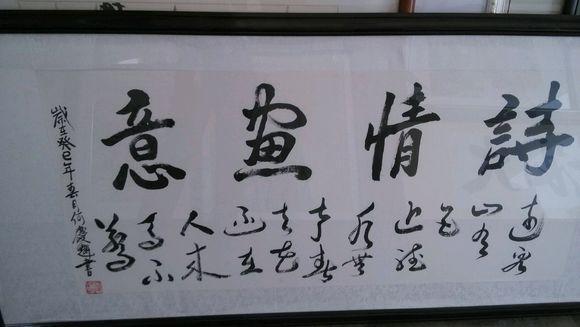 詩情畫意
遠看
山有
色
近聽
水無
声春
去花
還在
人来
鸟不
驚
歲在癸巳年春日何慶書